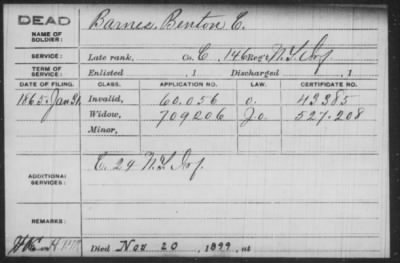 DEAD
NAME OF SOLDIER: Barnes, Benton C.
SERVICE: Late rank, Co. C, 146 Reg't N.Y. Inf
TERM OF SERVICE: Enlisted , 1 Discharged , 1
DATE OF FILING. CLASS. APPLICATION NO. LAW. CERTIFICATE NO.
1865. Jan 31, Invalid, 60.056 o. 43385
Widow, 709206 J.o. 527.208
Minor,
ADDITIONAL SERVICES: C. 29 N.Y. Inf.
REMARKS:
Died Nov 20, 1899, at